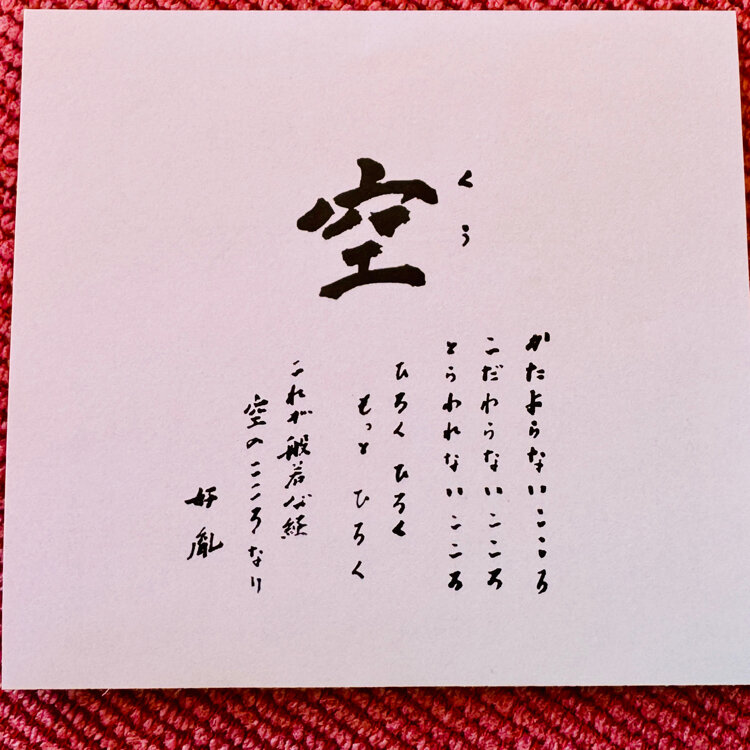 空
くう
かたよらないこころ
こだわらないこころ
とらわれないこころ
ひろく ひろく
もっと ひろく
これが般若心経
空のこころなり
好胤